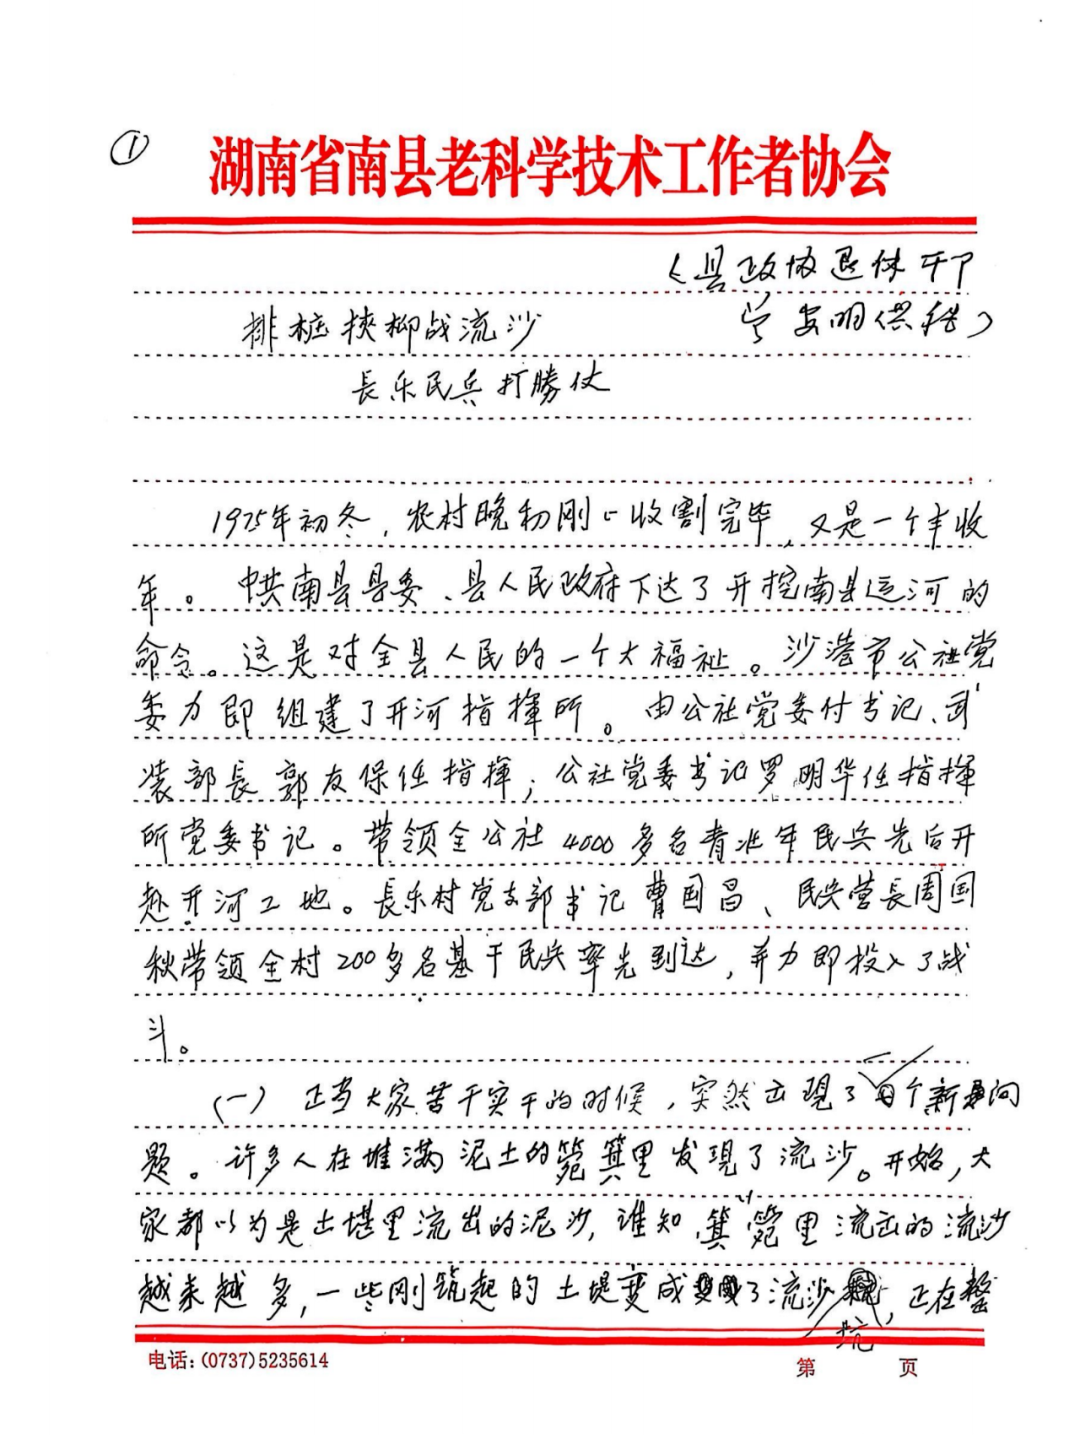 ①
湖南省南县老科学技术工作者协会
(县政协退休干
安明供稿)
排桩挟柳战流沙
長乐民兵打勝仗
1975年初冬,农村晚初刚心收割完毕,又是一个丰收
年。中共南县县委、县人民政府下达了开挖南县运河的
命令。这是对全县人民的一个大福祉。沙港市公社党
委力即组建了开河指挥所。由公社党委付书记、武
装部長郭友保任指揮;公社党委书记罗明华任指揮
所党委书记。带领全公社4000多名青壮年民兵先后开
赴开河工地。長乐村党支部书记曹国昌、民兵营長周国
秋带领全村200多名基干民兵率先到达,并力即投入了战
斗。
(一)正当大家苦干实干的时候,突然出現了个新问
题。许多人在堆满泥土的箢箕里发現了流沙。开始,大
家都以为是土堤里流出的泥沙,谁知箕箢里流出的流沙
越来越多,一些刚筑起的土堤变成了流沙坑,正在整
电话:(0737)5235614
第 页